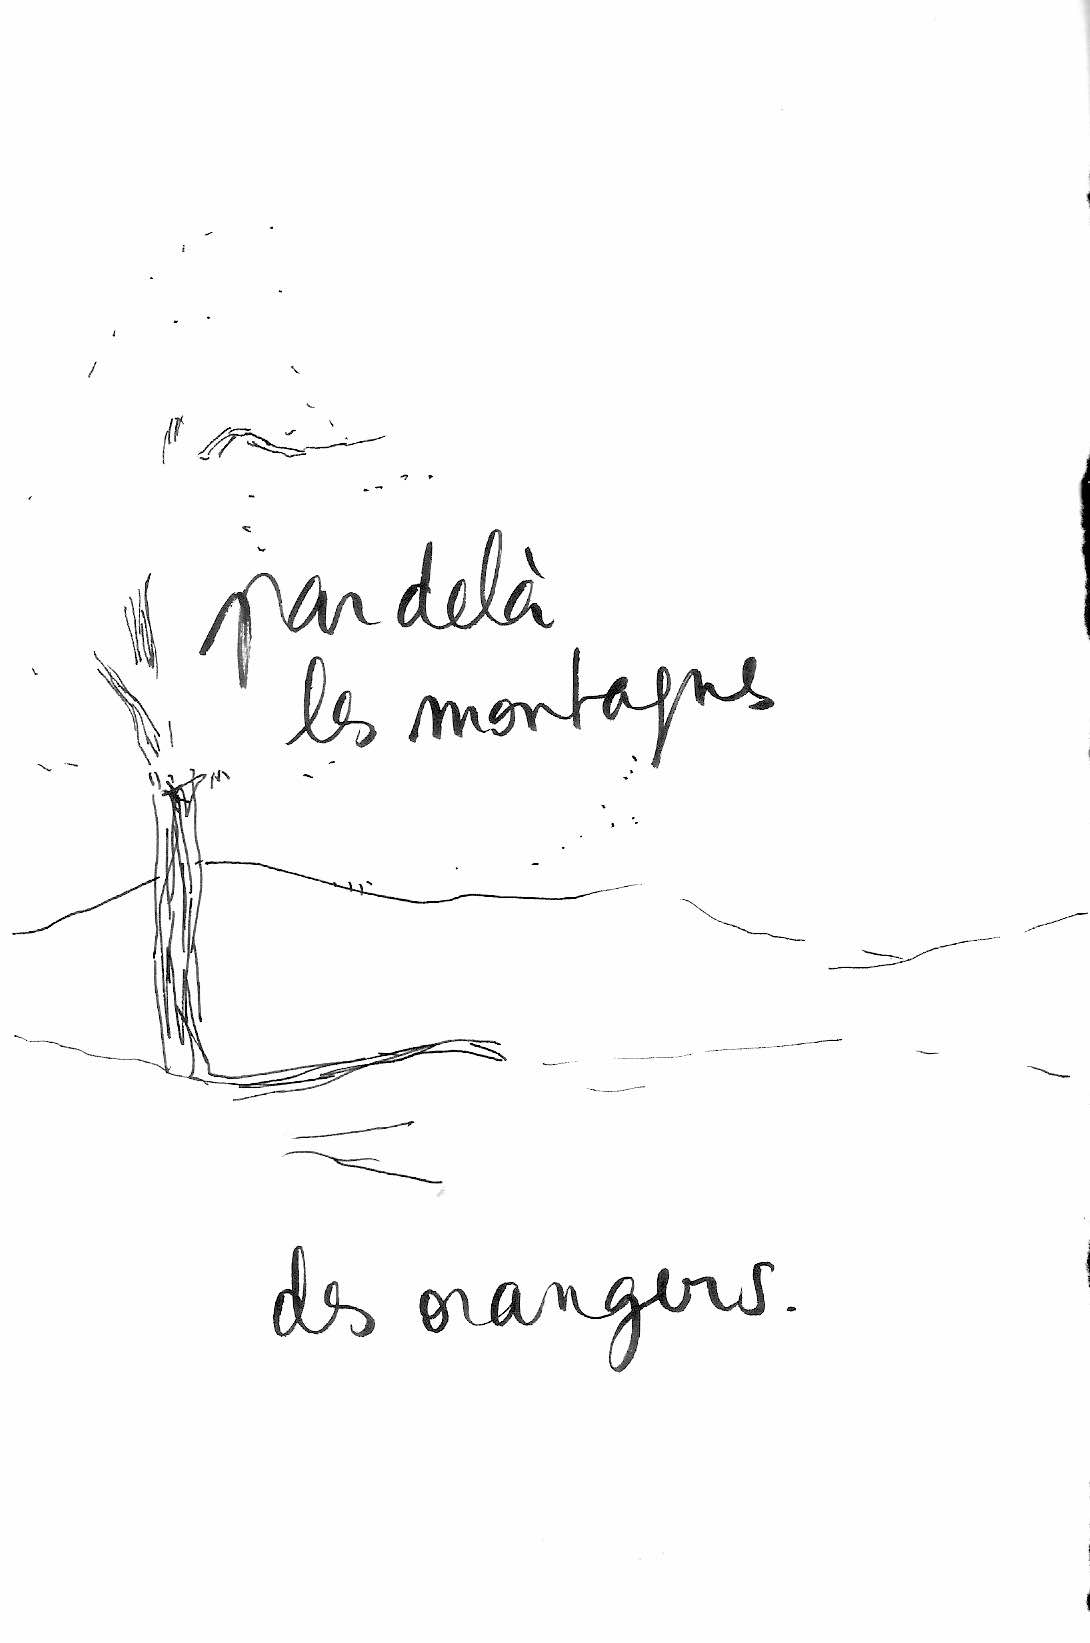 par delà
les montagnes
des orangers.